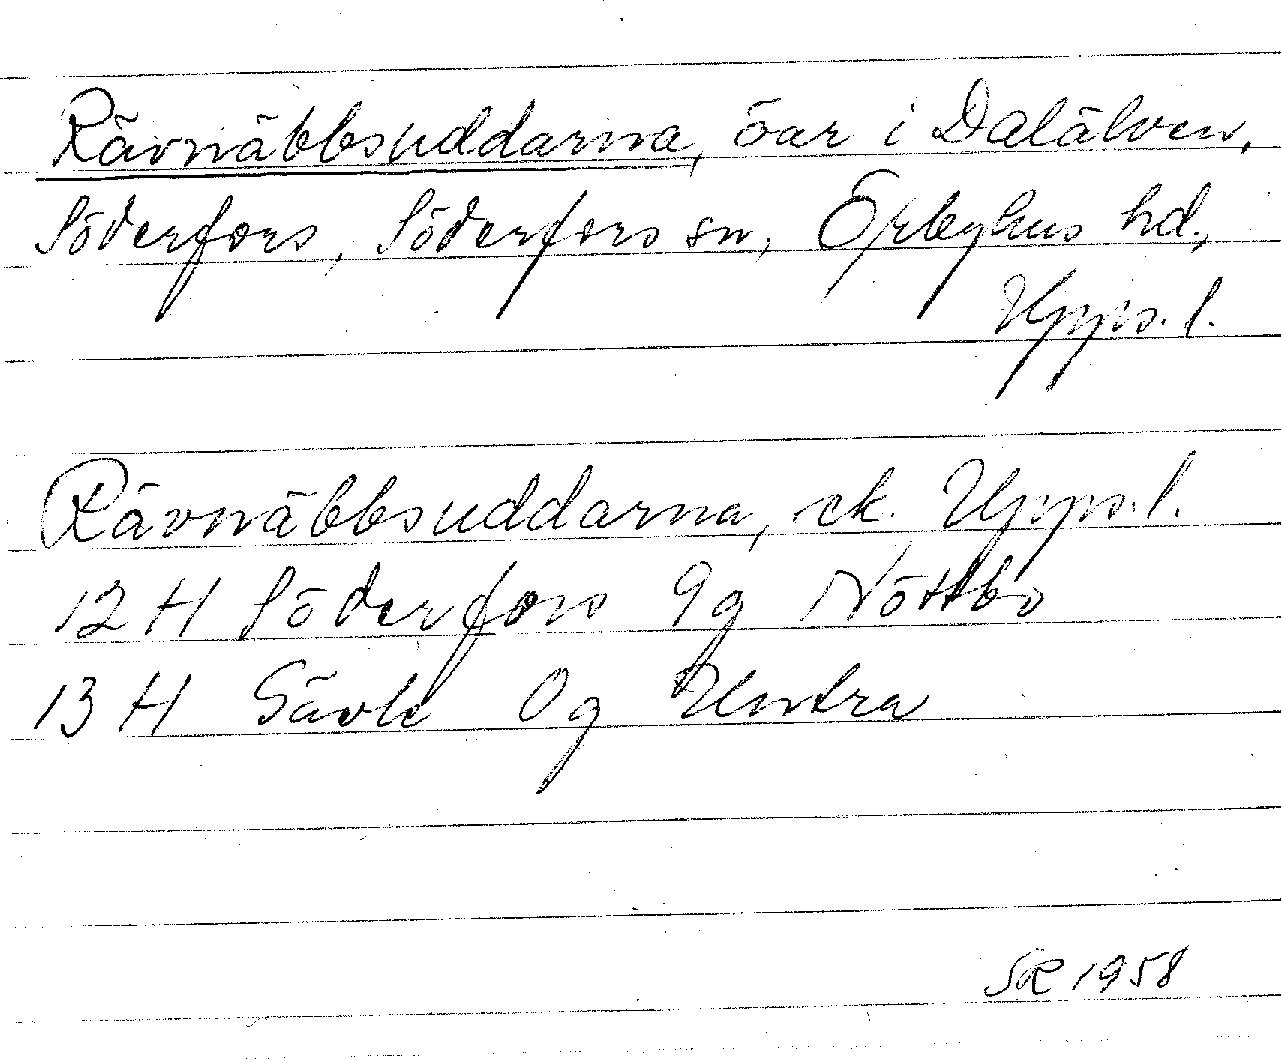 Rävnäbbsuddarna, öar i Dalälven,
Söderfors, Söderfors sn, Örbyhus hd,
Upps. l.
Rävnäbbsuddarna, ek. Upps. l.
12 H Söderfors 9g Nöttbo
13 H Gävle 0g Untra
SR 1958